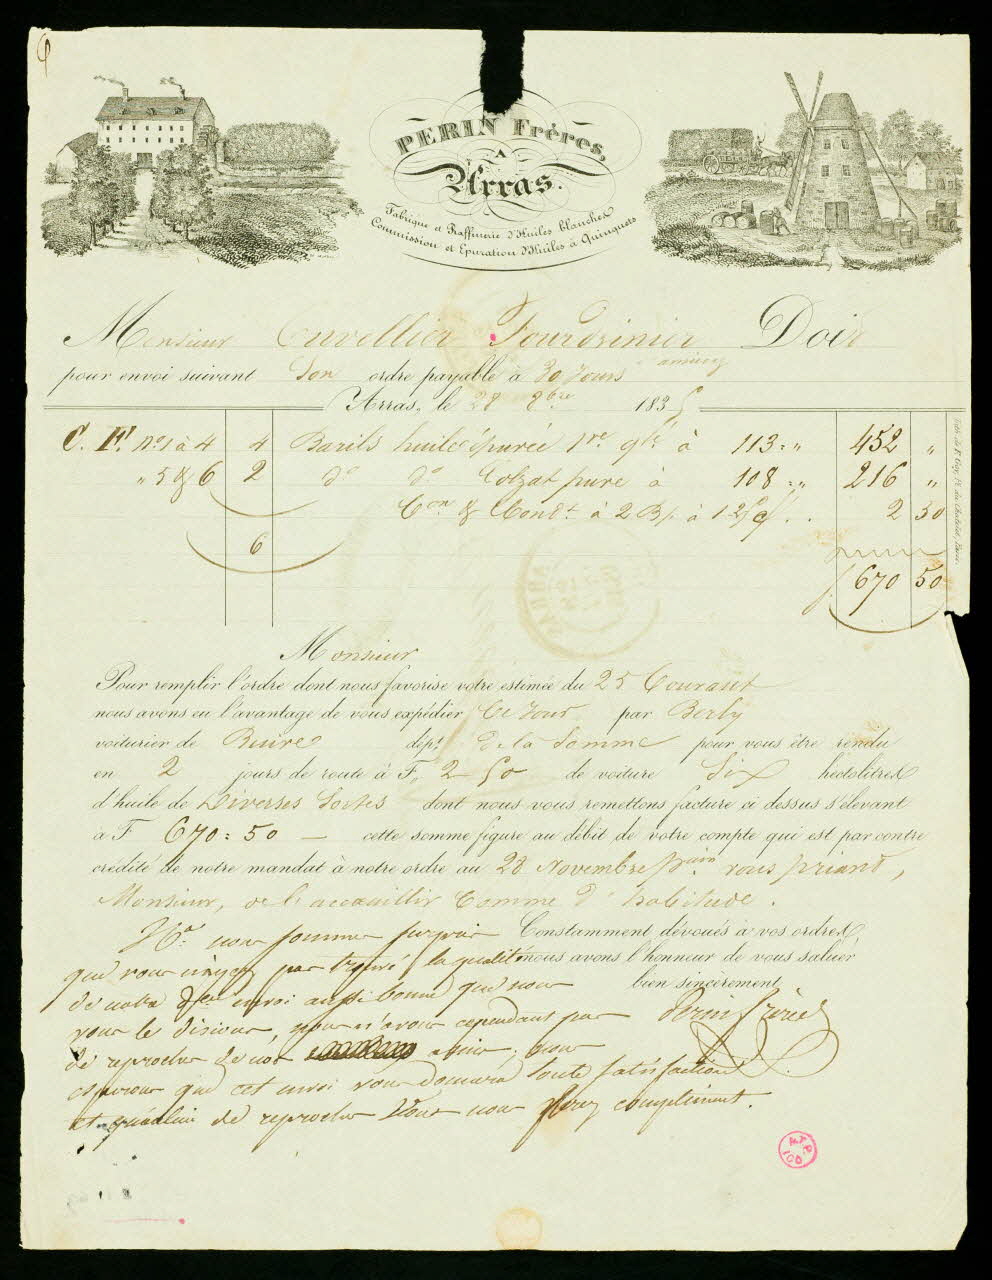 PERIN Frères,
A
Arras.
Fabrique et Raffinerie d'Huiles blanches
Commission et Epuration d'Huiles à Quinquets
Monsieur Cuvellier Fourdrinier Doit
pour envoi suivant Son ordre payable à 30 Jours
Arras, le 28 8bre 1835
C. F. Nos 1 à 4 4 Barils huile épurée 1re qté à 113 = " 452 "
" 5 & 6 2 do do Colzat pure à 108 = " 216 "
Con & Condt à 2 B/. à 1 25 c/. . . 2 50
6
f. 670 50
Monsieur
Pour remplir l'ordre dont nous favorise votre estimée du 25 Courant
nous avons eu l'avantage de vous expédier Ce Jour par Berly
voiturier de Buire dépt de la Somme pour vous être rendu
en 2 jours de route à F. 2 50 de voiture Six hectolitres
d'huile de Diverses Sortes dont nous vous remettons facture ci dessus s'élevant
à F 670 = 50 — cette somme figure au débit de votre compte qui est par contre
crédité de notre mandat à notre ordre au 28 Novembre pain vous priant,
Monsieur, de l'accueillir Comme d'habitude.
Constamment dévoués à vos ordres
nous avons l'honneur de vous saluer
bien sincèrement
Perin frères
nous sommes surpris
que vous n'ayez pas trouvé la qualité
de notre envoi aussi bonne que nous
vous le disions, nous n'avons cependant pas
de reproches de nos amis, nous
espérons que cet envoi vous donnera toute satisfaction
et de reproches Vous nos compliments.
A.T.P.
100